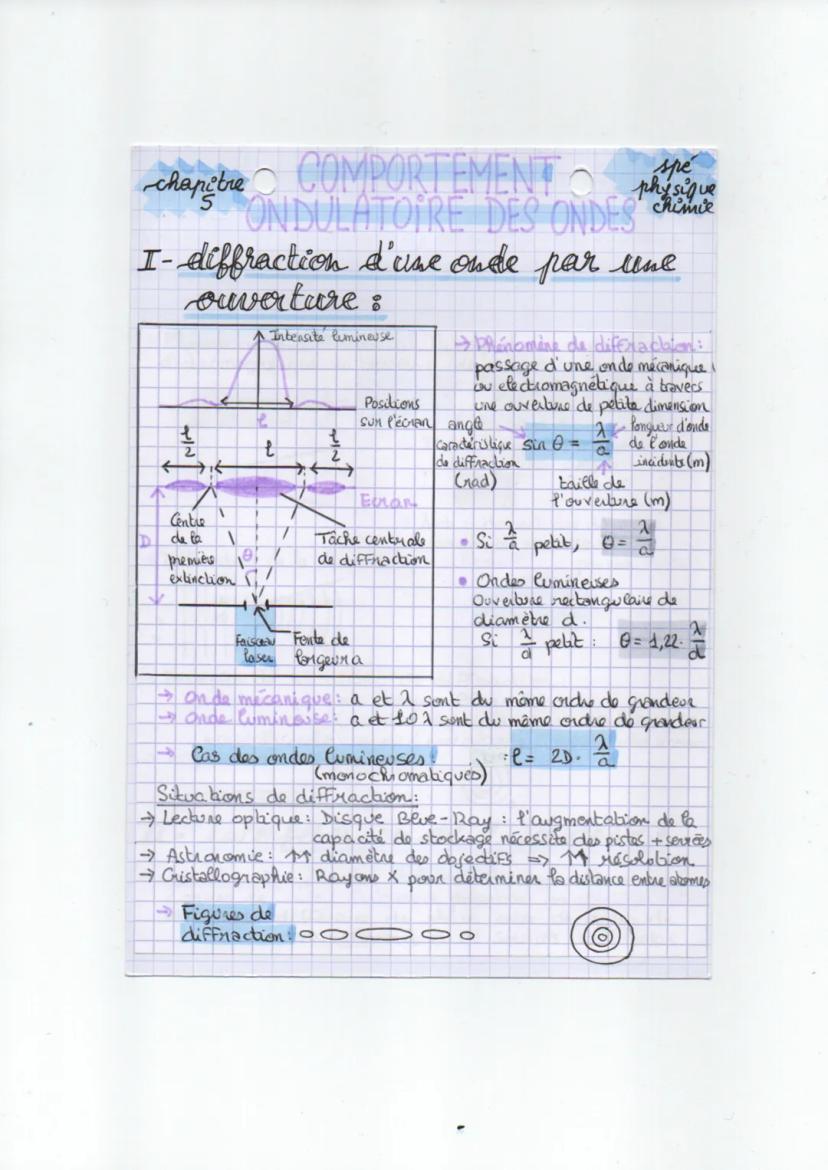 chapître
5
COMPORTEMENT
ONDULATOIRE DES ONDES
spé
physique
chimie
I- diffraction d'une onde par une
ouverture :
Intensité lumineuse
Positions
sur l'écran
ℓ
ℓ/2
ℓ
ℓ/2
Ecran
Centre
de la
première
extinction
Tâche centrale
de diffraction
D
θ
Faisceau
laser
Fente de
largeur a
→ Phénomène de diffraction :
passage d'une onde mécanique
ou electromagnétique à travers
une ouverture de petite dimension
angle
caractéristique
de diffraction
(rad)
sin θ = λ/a
longueur d'onde
de l'onde
incidente (m)
taille de
l'ouverture (m)
• Si λ/a petit, θ = λ/a
• Ondes lumineuses
Ouverture rectangulaire de
diamètre d.
Si λ/d petit : θ = 1,22 · λ/d
→ Onde mécanique : a et λ sont du même ordre de grandeur
→ Onde lumineuse : a et 10 λ sont du même ordre de grandeur
→ Cas des ondes lumineuses : ℓ = 2D · λ/a
(monochromatiques)
Situations de diffraction :
→ Lecture optique : Disque Blue-Ray : l'augmentation de la
capacité de stockage nécessite des pistes + serrées
→ Astronomie : ↑↑ diamètre des objectifs => ↑↑ résolution
→ Cristallographie : Rayons X pour déterminer la distance entre atomes
→ Figures de
diffraction :